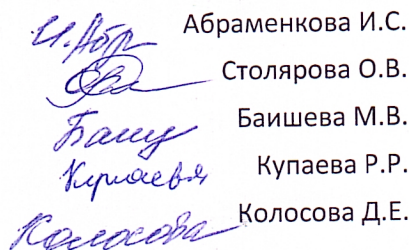 И. Абр Абраменкова И.С.
Столярова О.В.
Баиш Баишева М.В.
Купаева Купаева Р.Р.
Колосова Колосова Д.Е.